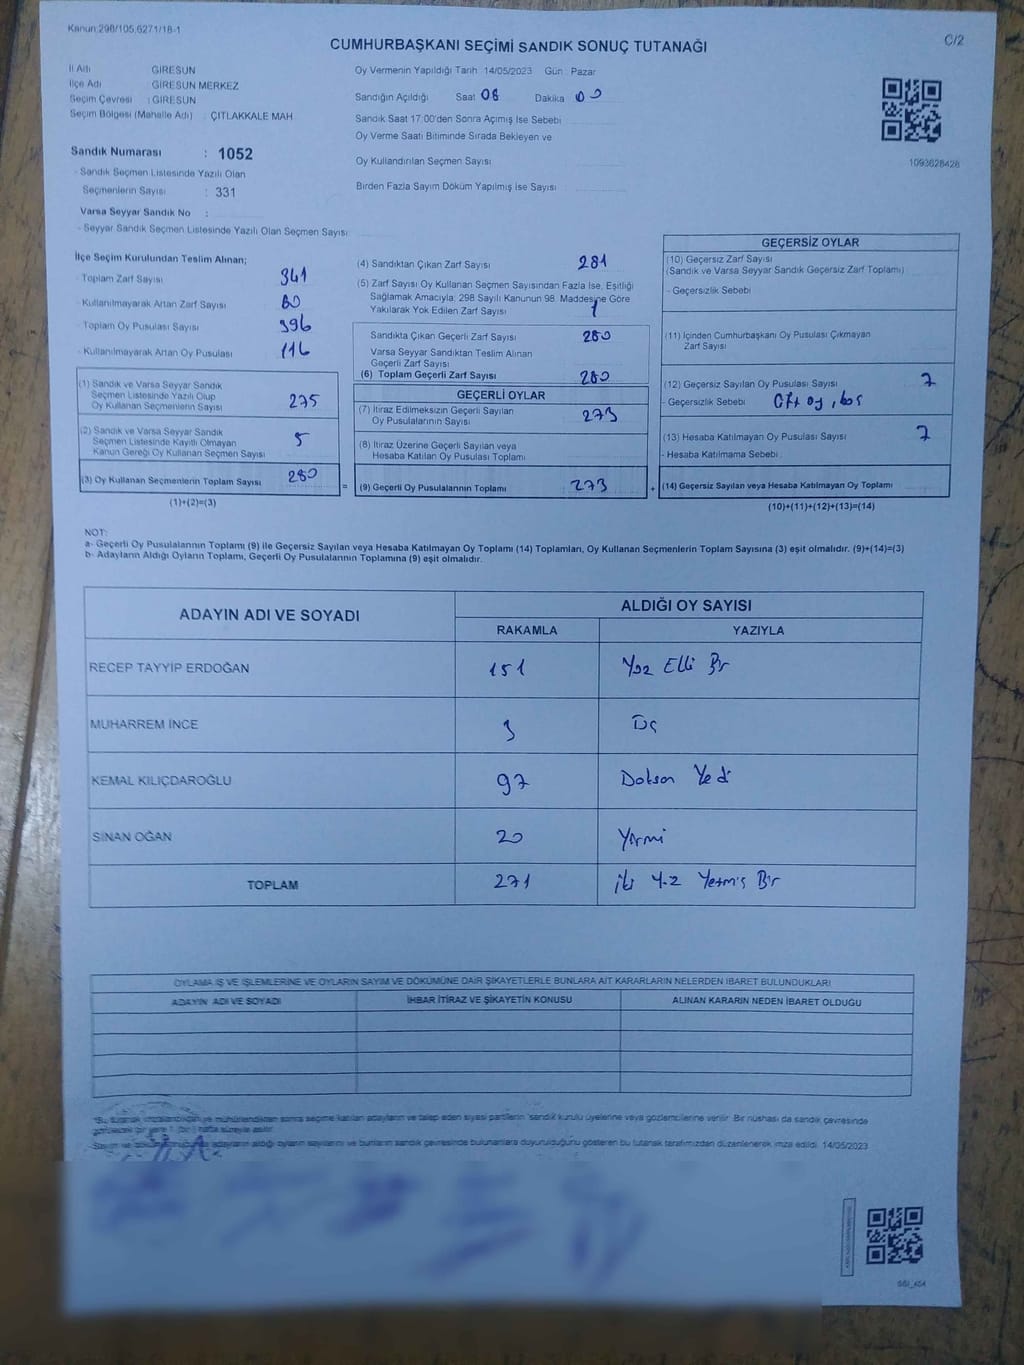 Kanun 298/105,6271/18-1
C/2
CUMHURBAŞKANI SEÇİMİ SANDIK SONUÇ TUTANAĞI
İl Adı GİRESUN
İlçe Adı GİRESUN MERKEZ
Seçim Çevresi : GİRESUN
Seçim Bölgesi (Mahalle Adı) : ÇITLAKKALE MAH
Sandık Numarası : 1052
- Sandık Seçmen Listesinde Yazılı Olan
Seçmenlerin Sayısı : 331
Varsa Seyyar Sandık No :
- Seyyar Sandık Seçmen Listesinde Yazılı Olan Seçmen Sayısı:
Oy Vermenin Yapıldığı Tarih 14/05/2023 Gün Pazar
Sandığın Açıldığı Saat 08 Dakika 00
Sandık Saat 17:00'den Sonra Açımış İse Sebebi
Oy Verme Saati Bitiminde Sırada Bekleyen ve
Oy Kullandırılan Seçmen Sayısı
Birden Fazla Sayım Döküm Yapılmış ise Sayısı
1093628428
İlçe Seçim Kurulundan Teslim Alınan;
- Toplam Zarf Sayısı 341
- Kullanılmayarak Artan Zarf Sayısı 60
- Toplam Oy Pusulası Sayısı 396
- Kullanılmayarak Artan Oy Pusulası 116
(1) Sandık ve Varsa Seyyar Sandık
Seçmen Listesinde Yazılı Olup
Oy Kullanan Seçmenlerin Sayısı 275
(2) Sandık ve Varsa Seyyar Sandık
Seçmen Listesinde Kayıtlı Olmayan
Kanun Gereği Oy Kullanan Seçmen Sayısı 5
(3) Oy Kullanan Seçmenlerin Toplam Sayısı 280
(1)+(2)=(3)
(4) Sandıktan Çıkan Zarf Sayısı 281
(5) Zarf Sayısı Oy Kullanan Seçmen Sayısından Fazla İse, Eşitliği
Sağlamak Amacıyla, 298 Sayılı Kanunun 98. Maddesine Göre
Yakılarak Yok Edilen Zarf Sayısı 1
Sandıkta Çıkan Geçerli Zarf Sayısı 280
Varsa Seyyar Sandıktan Teslim Alınan
Geçerli Zarf Sayısı
(6) Toplam Geçerli Zarf Sayısı 280
GEÇERLİ OYLAR
(7) İtiraz Edilmeksizin Geçerli Sayılan
Oy Pusulalarının Sayısı 273
(8) İtiraz Üzerine Geçerli Sayılan veya
Hesaba Katılan Oy Pusulası Toplamı
= (9) Geçerli Oy Pusulalarının Toplamı 273
GEÇERSİZ OYLAR
(10) Geçersiz Zarf Sayısı
(Sandık ve Varsa Seyyar Sandık Geçersiz Zarf Toplamı)
- Geçersizlik Sebebi
(11) İçinden Cumhurbaşkanı Oy Pusulası Çıkmayan
Zarf Sayısı
(12) Geçersiz Sayılan Oy Pusulası Sayısı 7
- Geçersizlik Sebebi Çift oy, boş
(13) Hesaba Katılmayan Oy Pusulası Sayısı 7
- Hesaba Katılmama Sebebi
+ (14) Geçersiz Sayılan veya Hesaba Katılmayan Oy Toplamı
(10)+(11)+(12)+(13)=(14)
NOT:
a- Geçerli Oy Pusulalarının Toplamı (9) ile Geçersiz Sayılan veya Hesaba Katılmayan Oy Toplamı (14) Toplamları, Oy Kullanan Seçmenlerin Toplam Sayısına (3) eşit olmalıdır. (9)+(14)=(3)
b- Adayların Aldığı Oyların Toplamı, Geçerli Oy Pusulalarının Toplamına (9) eşit olmalıdır.
ADAYIN ADI VE SOYADI ALDIĞI OY SAYISI
RAKAMLA YAZIYLA
RECEP TAYYİP ERDOĞAN 151 Yüz Elli Bir
MUHARREM İNCE 3 Üç
KEMAL KILIÇDAROĞLU 97 Doksan Yedi
SİNAN OĞAN 20 Yirmi
TOPLAM 271 iki Yüz Yetmiş Bir
OYLAMA İŞ VE İŞLEMLERİNE VE OYLARIN SAYIM VE DÖKÜMÜNE DAİR ŞİKAYETLERLE BUNLARA AİT KARARLARIN NELERDEN İBARET BULUNDUKLARI
ADAYIN ADI VE SOYADI İHBAR İTİRAZ VE ŞİKAYETİN KONUSU ALINAN KARARIN NEDEN İBARET OLDUĞU
*Bu tutanak imzalandıktan ve mühürlendikten sonra seçime katılan adayların ve talep eden siyasi partilerin sandık kurulu üyelerine veya gözlemcilerine verilir. Bir nüshası da sandık çevresinde
adayların aldığı oyların sayılarını ve bunların sandık çevresinde bulunanlara duyurulduğunu gösteren bu tutanak tarafımızdan düzenlenerek imza edildi. 14/05/2023
SBI_454